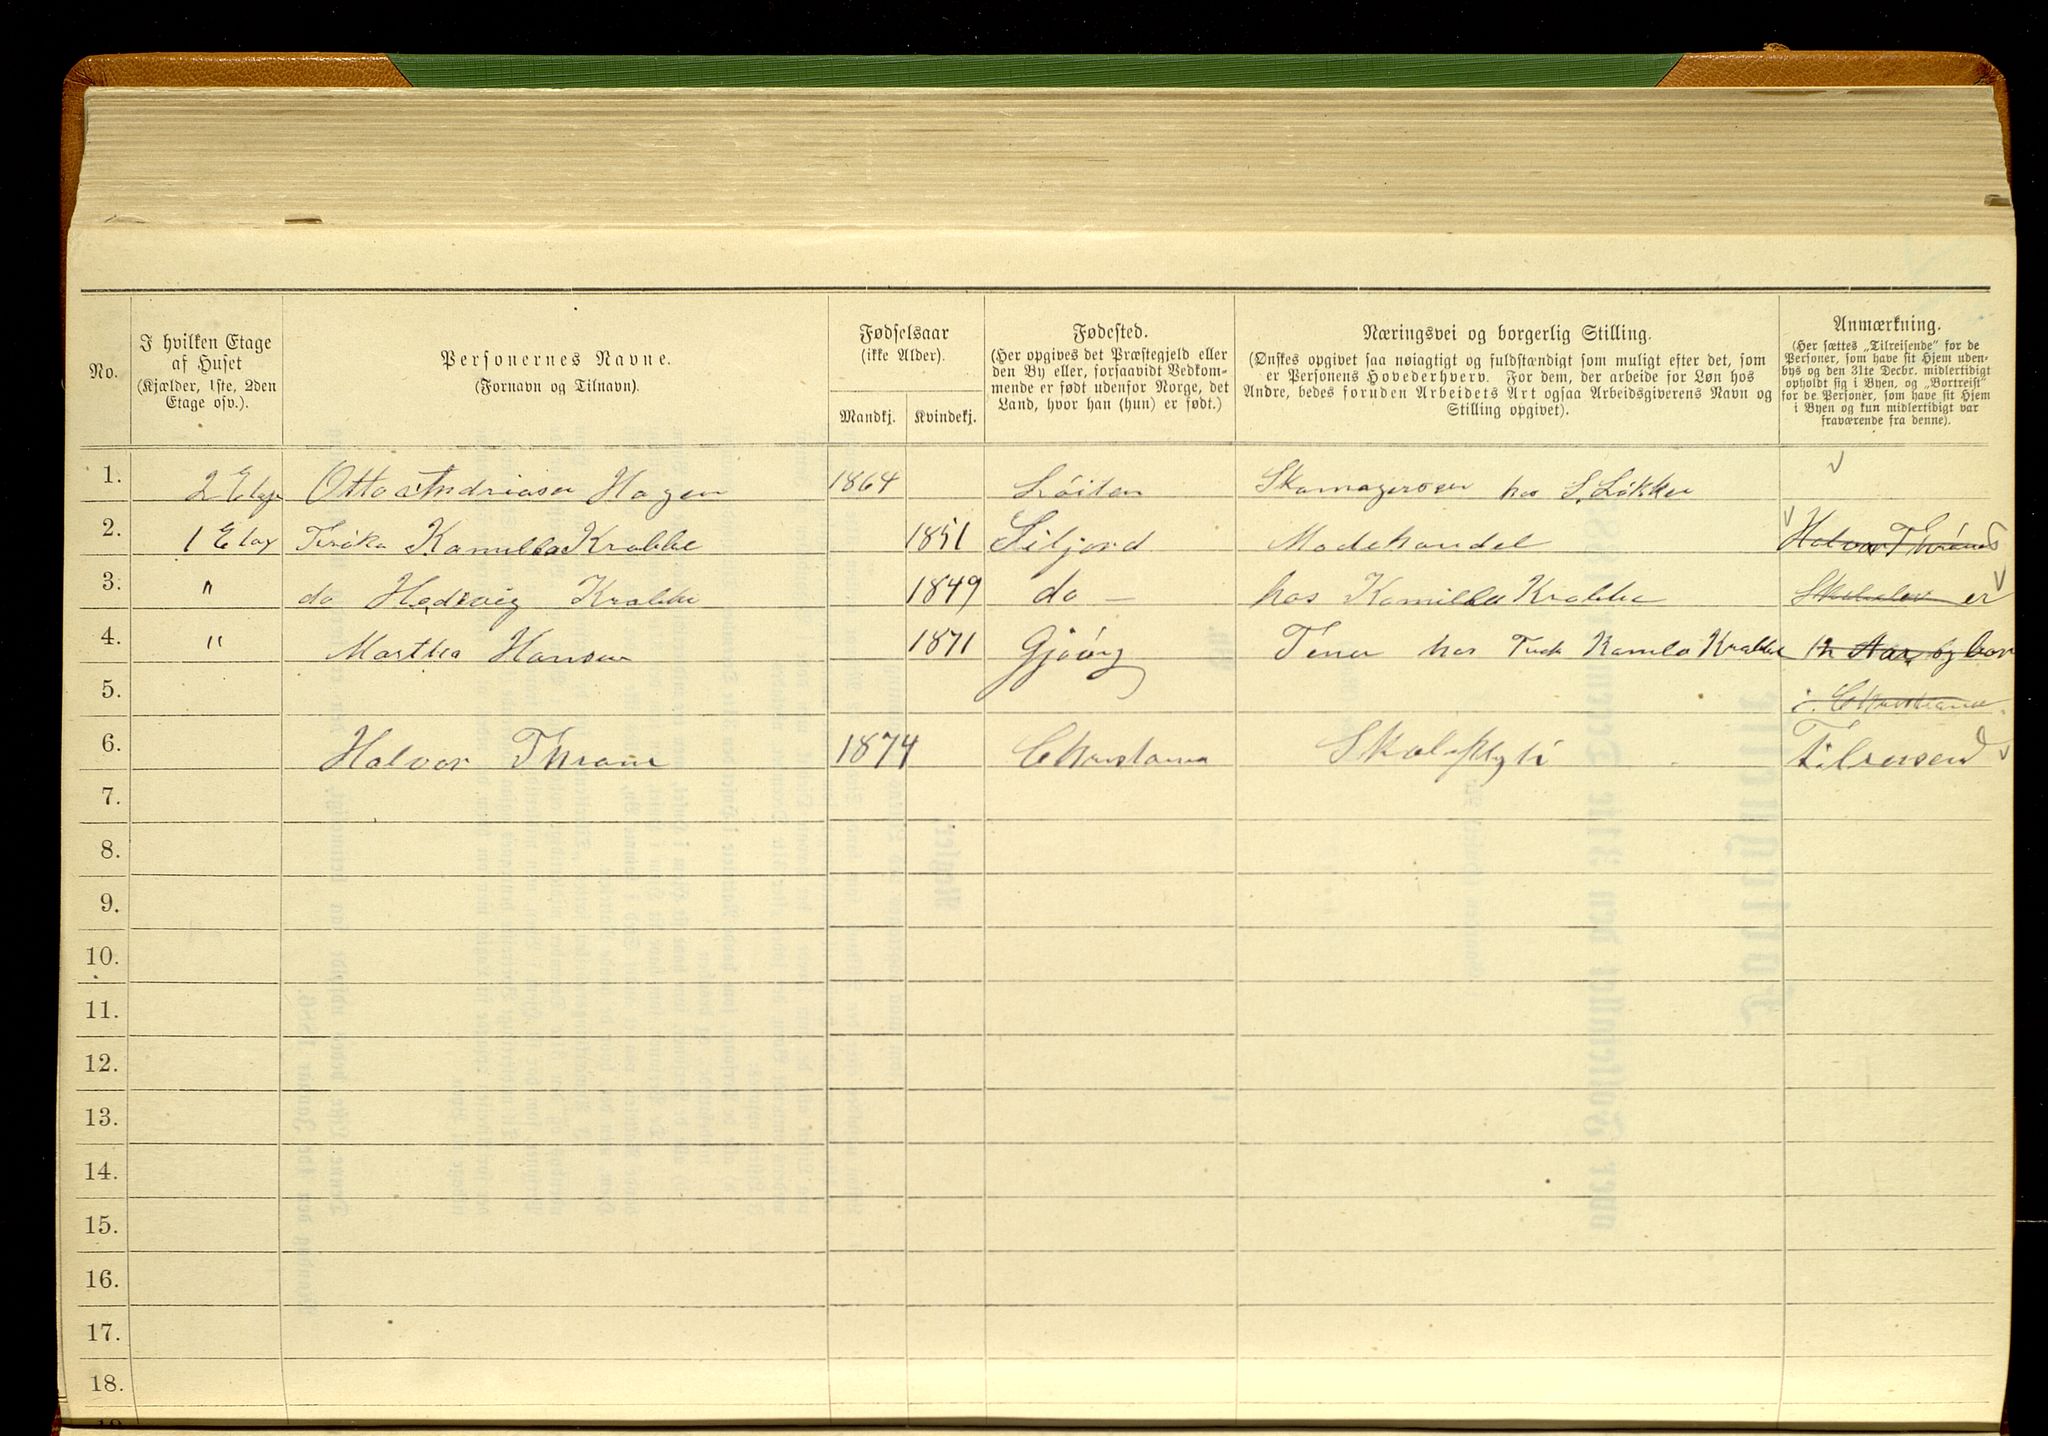 No.
I hvilken Etage
af Huset
(Kjælder, 1ste, 2den
Etage osv.).
Personernes Navne.
(Fornavn og Tilnavn).
Fødselsaar
(ikke Alder).
Mandkj.
Kvindekj.
Fødested.
(Her opgives det Præstegjeld eller
den By eller, forsaavidt Vedkom-
mende er født udenfor Norge, det
Land, hvor han (hun) er født.)
Næringsvei og borgerlig Stilling.
(Ønskes opgivet saa nøiagtigt og fuldstændigt som muligt efter det, som
er Personens Hovederhverv. For dem, der arbeide for Løn hos
Andre, bedes foruden Arbeidets Art ogsaa Arbeidsgiverens Navn og
Stilling opgivet).
Anmærkning.
(Her sættes „Tilreisende" for de
Personer, som have sit Hjem uden-
bys og den 31te Decbr. midlertidigt
opholdt sig i Byen, og „Bortreist"
for de Personer, som have sit Hjem
i Byen og kun midlertidigt var
fraværende fra denne).
1. 2 Etage Otto Andreasen Hagen 1864 Løiten hos S. Løkker
2. 1 Etag Frøken Kamilla Krabbe 1851 Siljord Modehandel Halvor Thrane
3. " do Hedevig Krabbe 1849 do - hos Kamilla Krabbe er
4. " Martha Hansen 1871 Gjøvig hos Frøk Kamila Krabbe 12 Aar og bor
5. i Christiania
6. Halvor Thrane 1874 Christiania Tilreisend
7.
8.
9.
10.
11.
12.
13.
14.
15.
16.
17.
18.